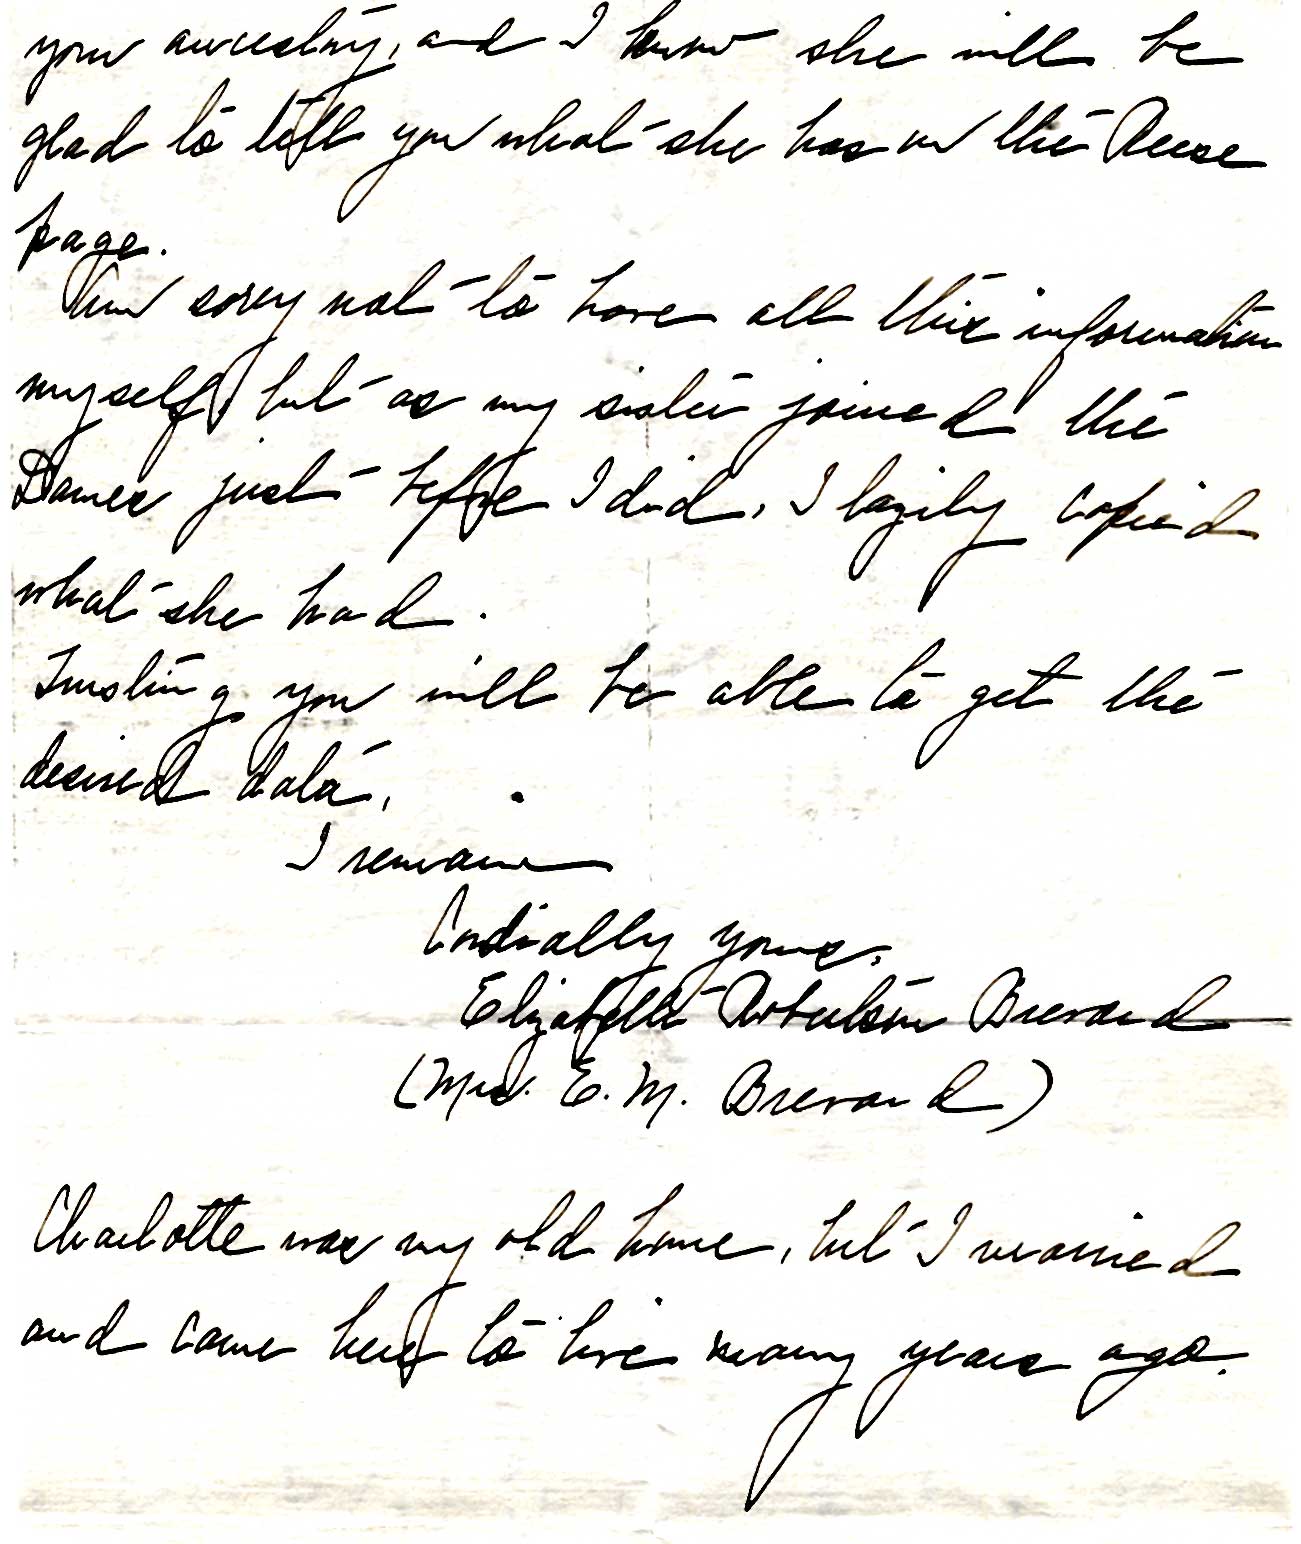 your ancestry, and I know she will be
glad to tell you what she has on the Reese
page.
Am sorry not to have all this information
myself, but as my sister joined the
Dames just before I did, I lazily copied
what she had.
Trusting you will be able to get the
desired data,
I remain
Cordially yours,
Elizabeth Brevard
(Mrs. E. M. Brevard)
Charlotte was my old home, but I married
and came here to live many years ago.